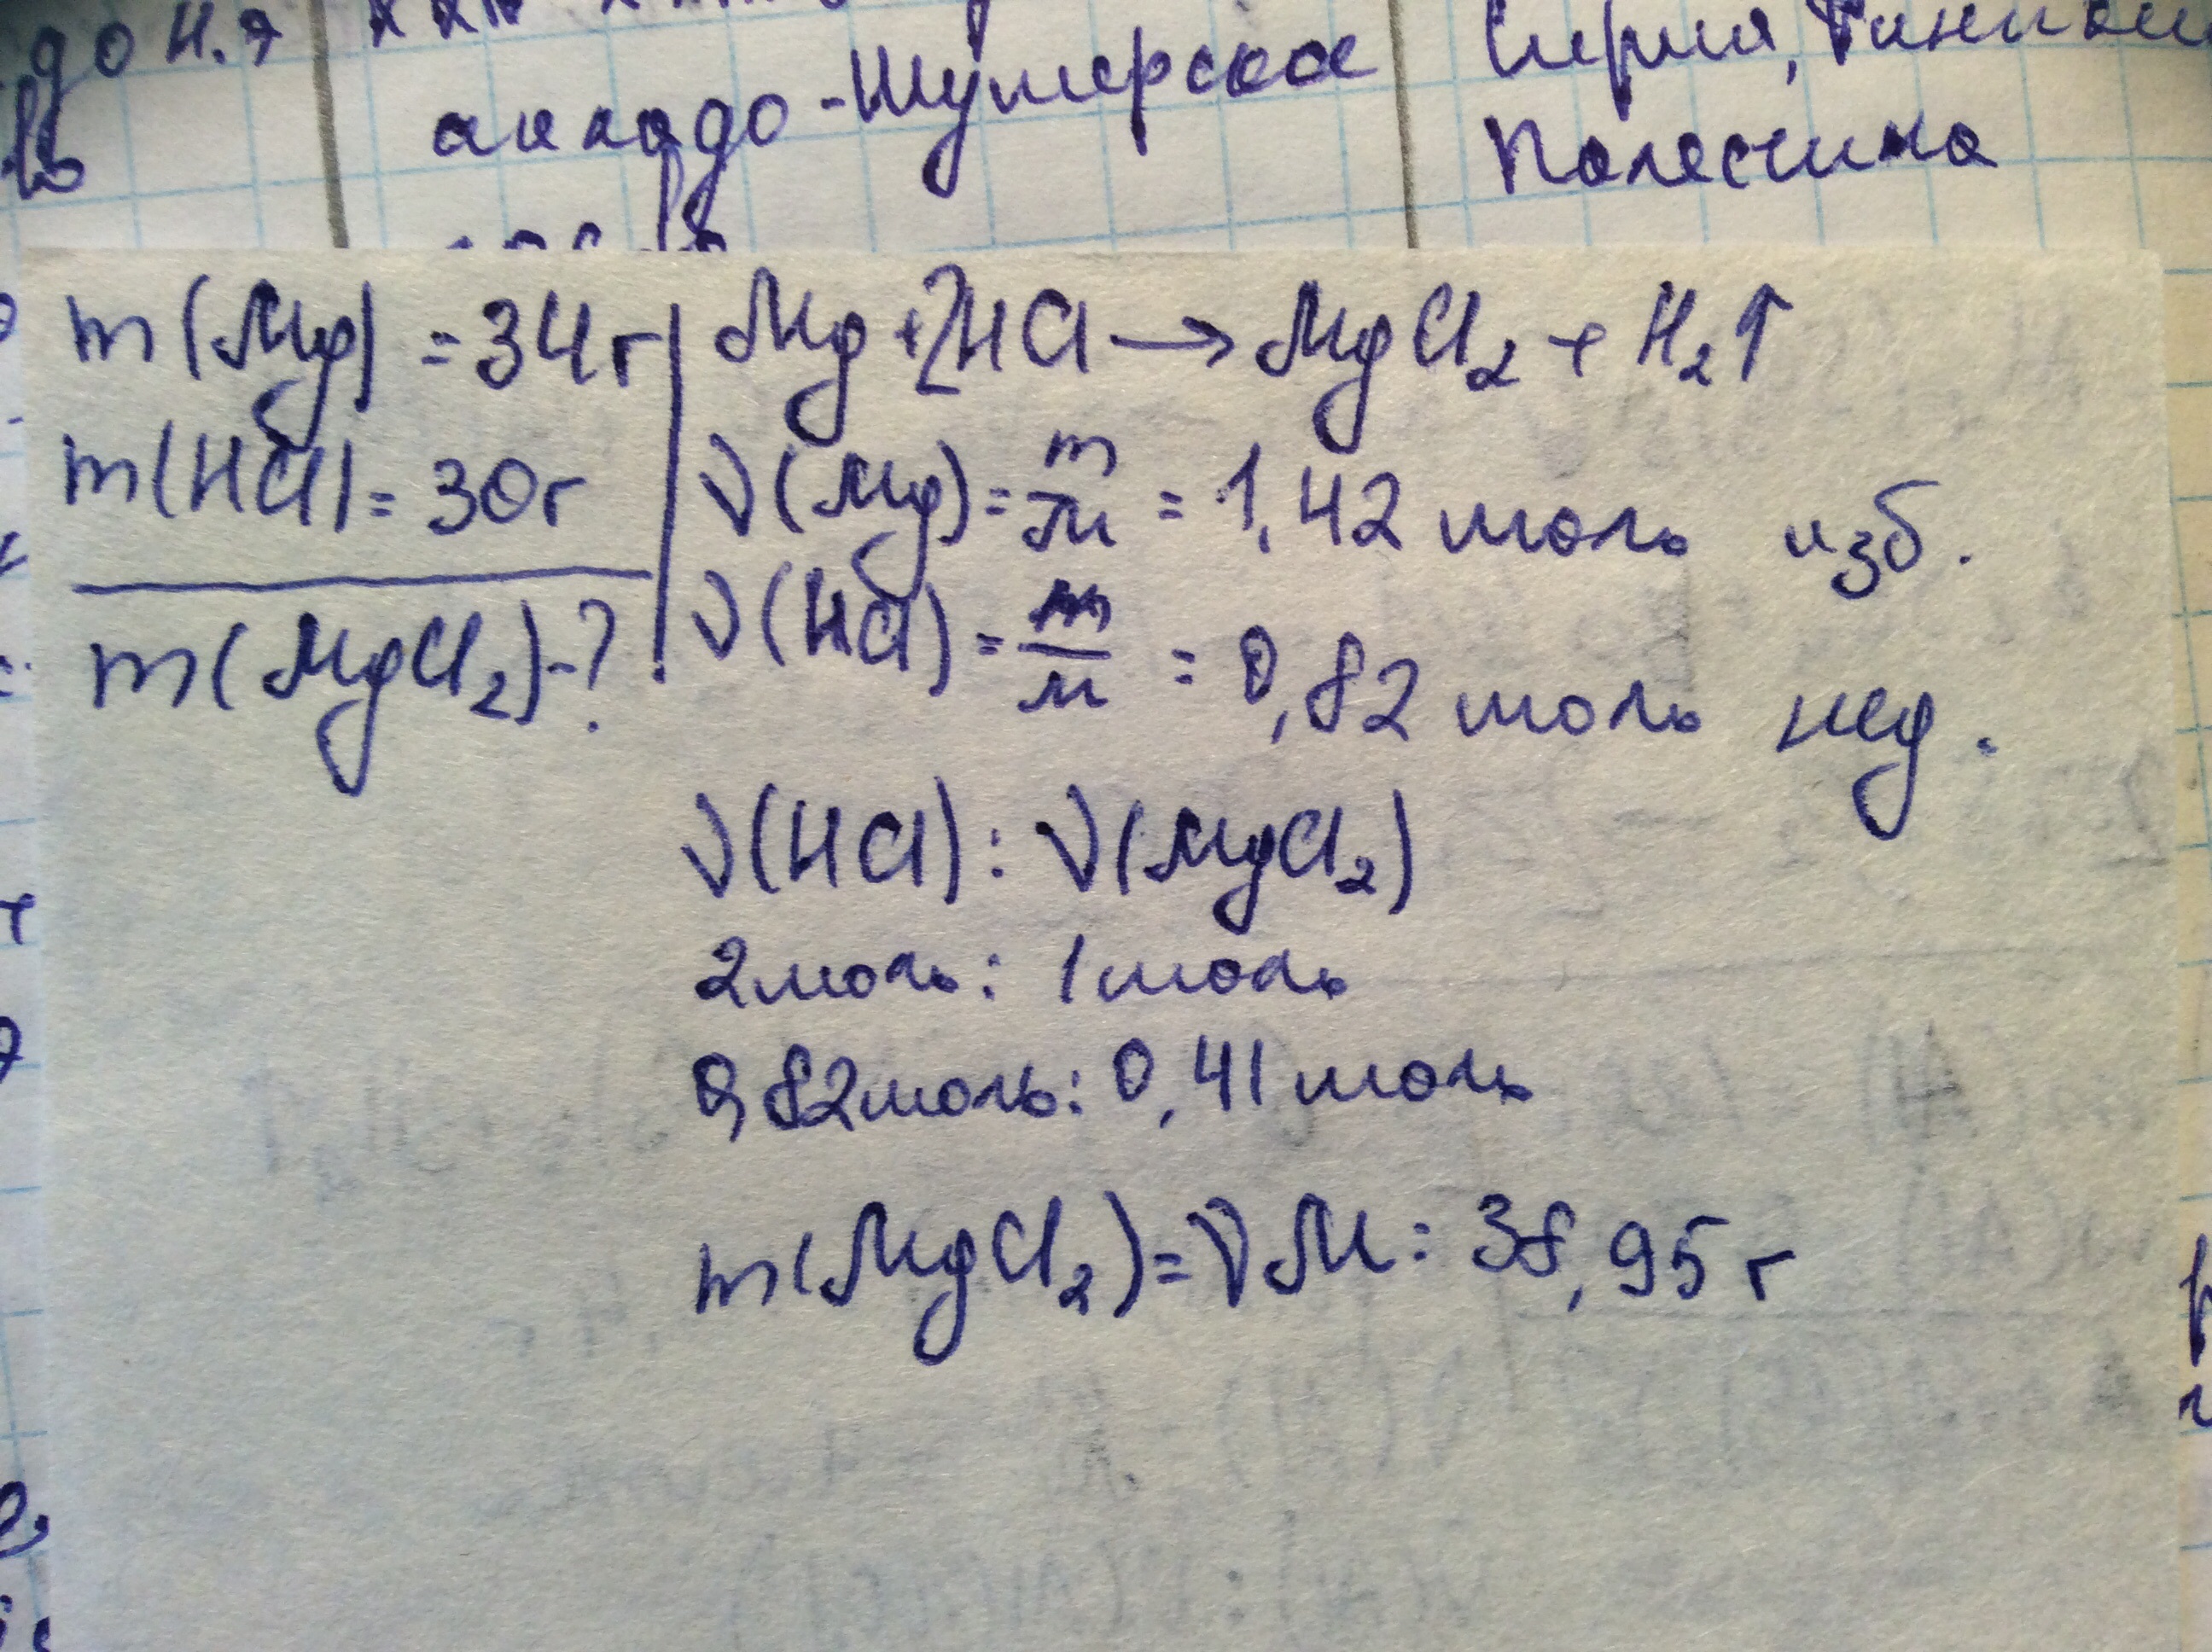 до н.э
аккадо-Шумерское
Сирия, Финикия
Палестина
m(Mg) = 34г
m(HCl) = 30г
m(MgCl₂)-?
Mg + 2HCl → MgCl₂ + H₂↑
ν(Mg) = m/M = 1,42 моль изб.
ν(HCl) = m/M = 0,82 моль нед.
ν(HCl) : ν(MgCl₂)
2моль : 1моль
0,82моль : 0,41моль
m(MgCl₂) = νM = 38,95г